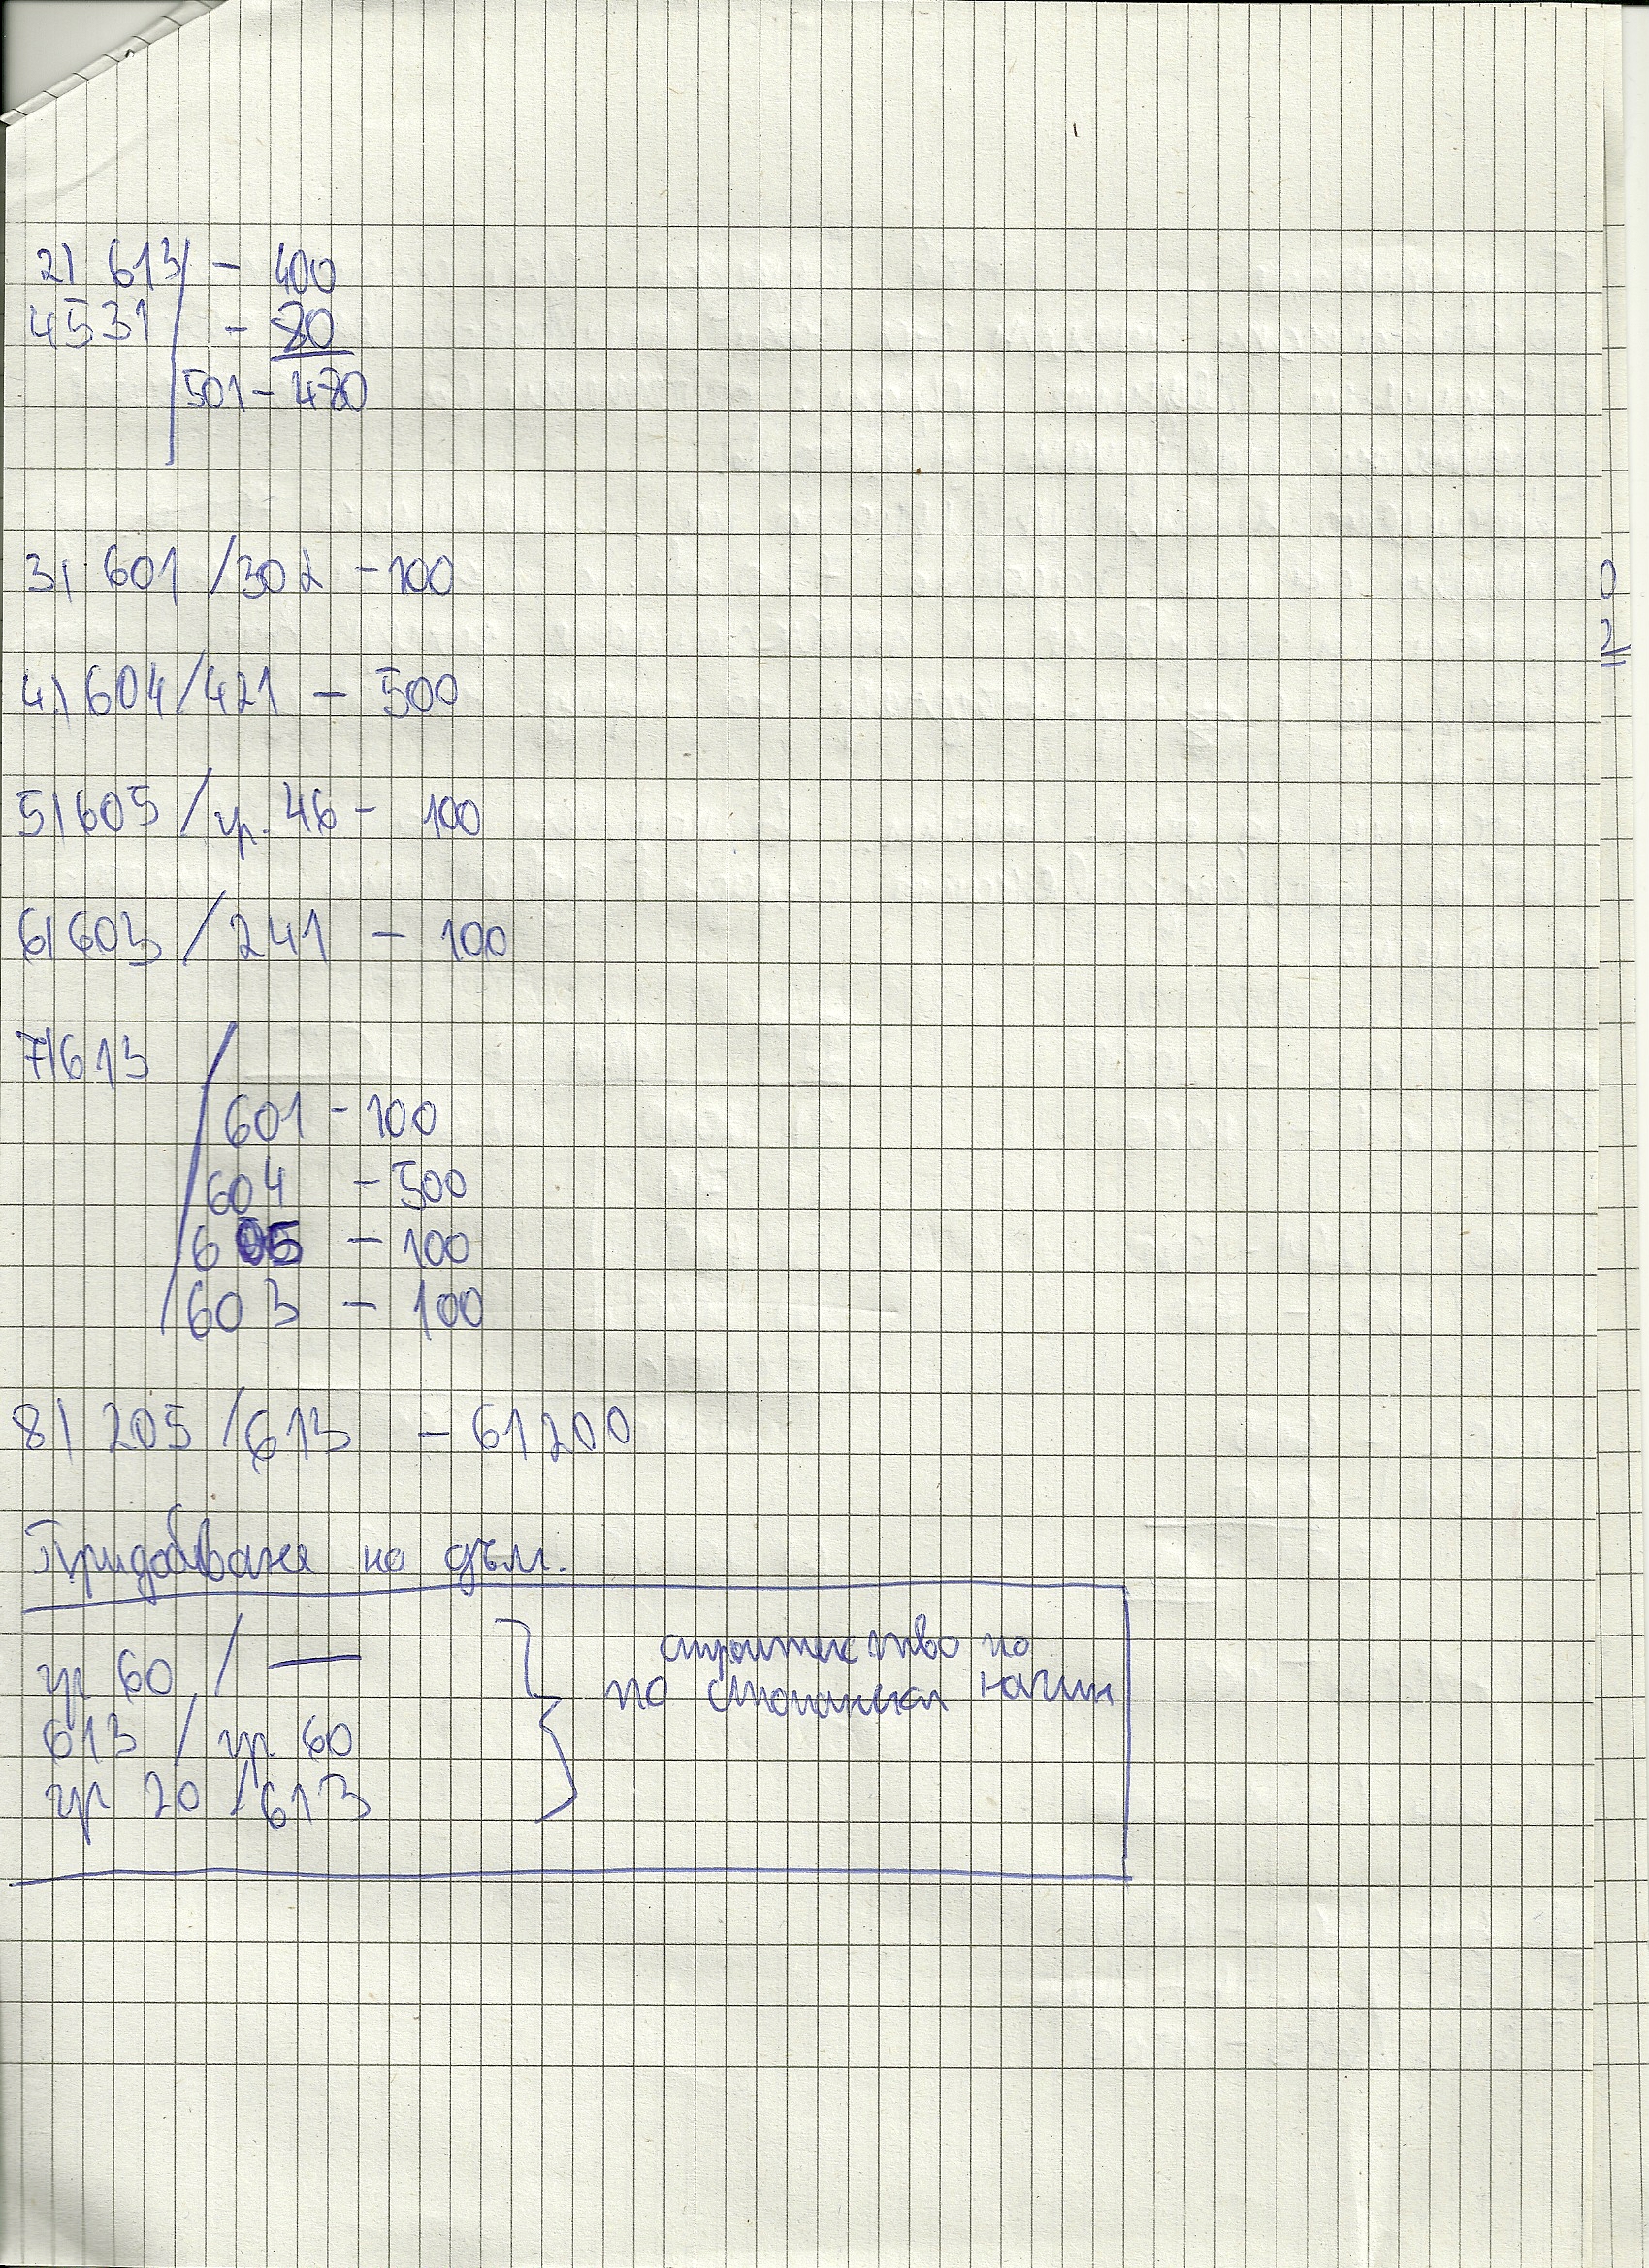 2) 613 / - 400
4531 - 80
501 - 480
3) 601 / 302 - 100
4) 604 / 421 - 500
5) 605 / гр. 46 - 100
6) 603 / 241 - 100
7) 613 /
601 - 100
604 - 500
605 - 100
603 - 100
8) 205 / 613 - 61200
Придобиване на дъм.
гр 60 / —
613 / гр 60
гр 20 / 613
строителство по
по стопански начин
0
2